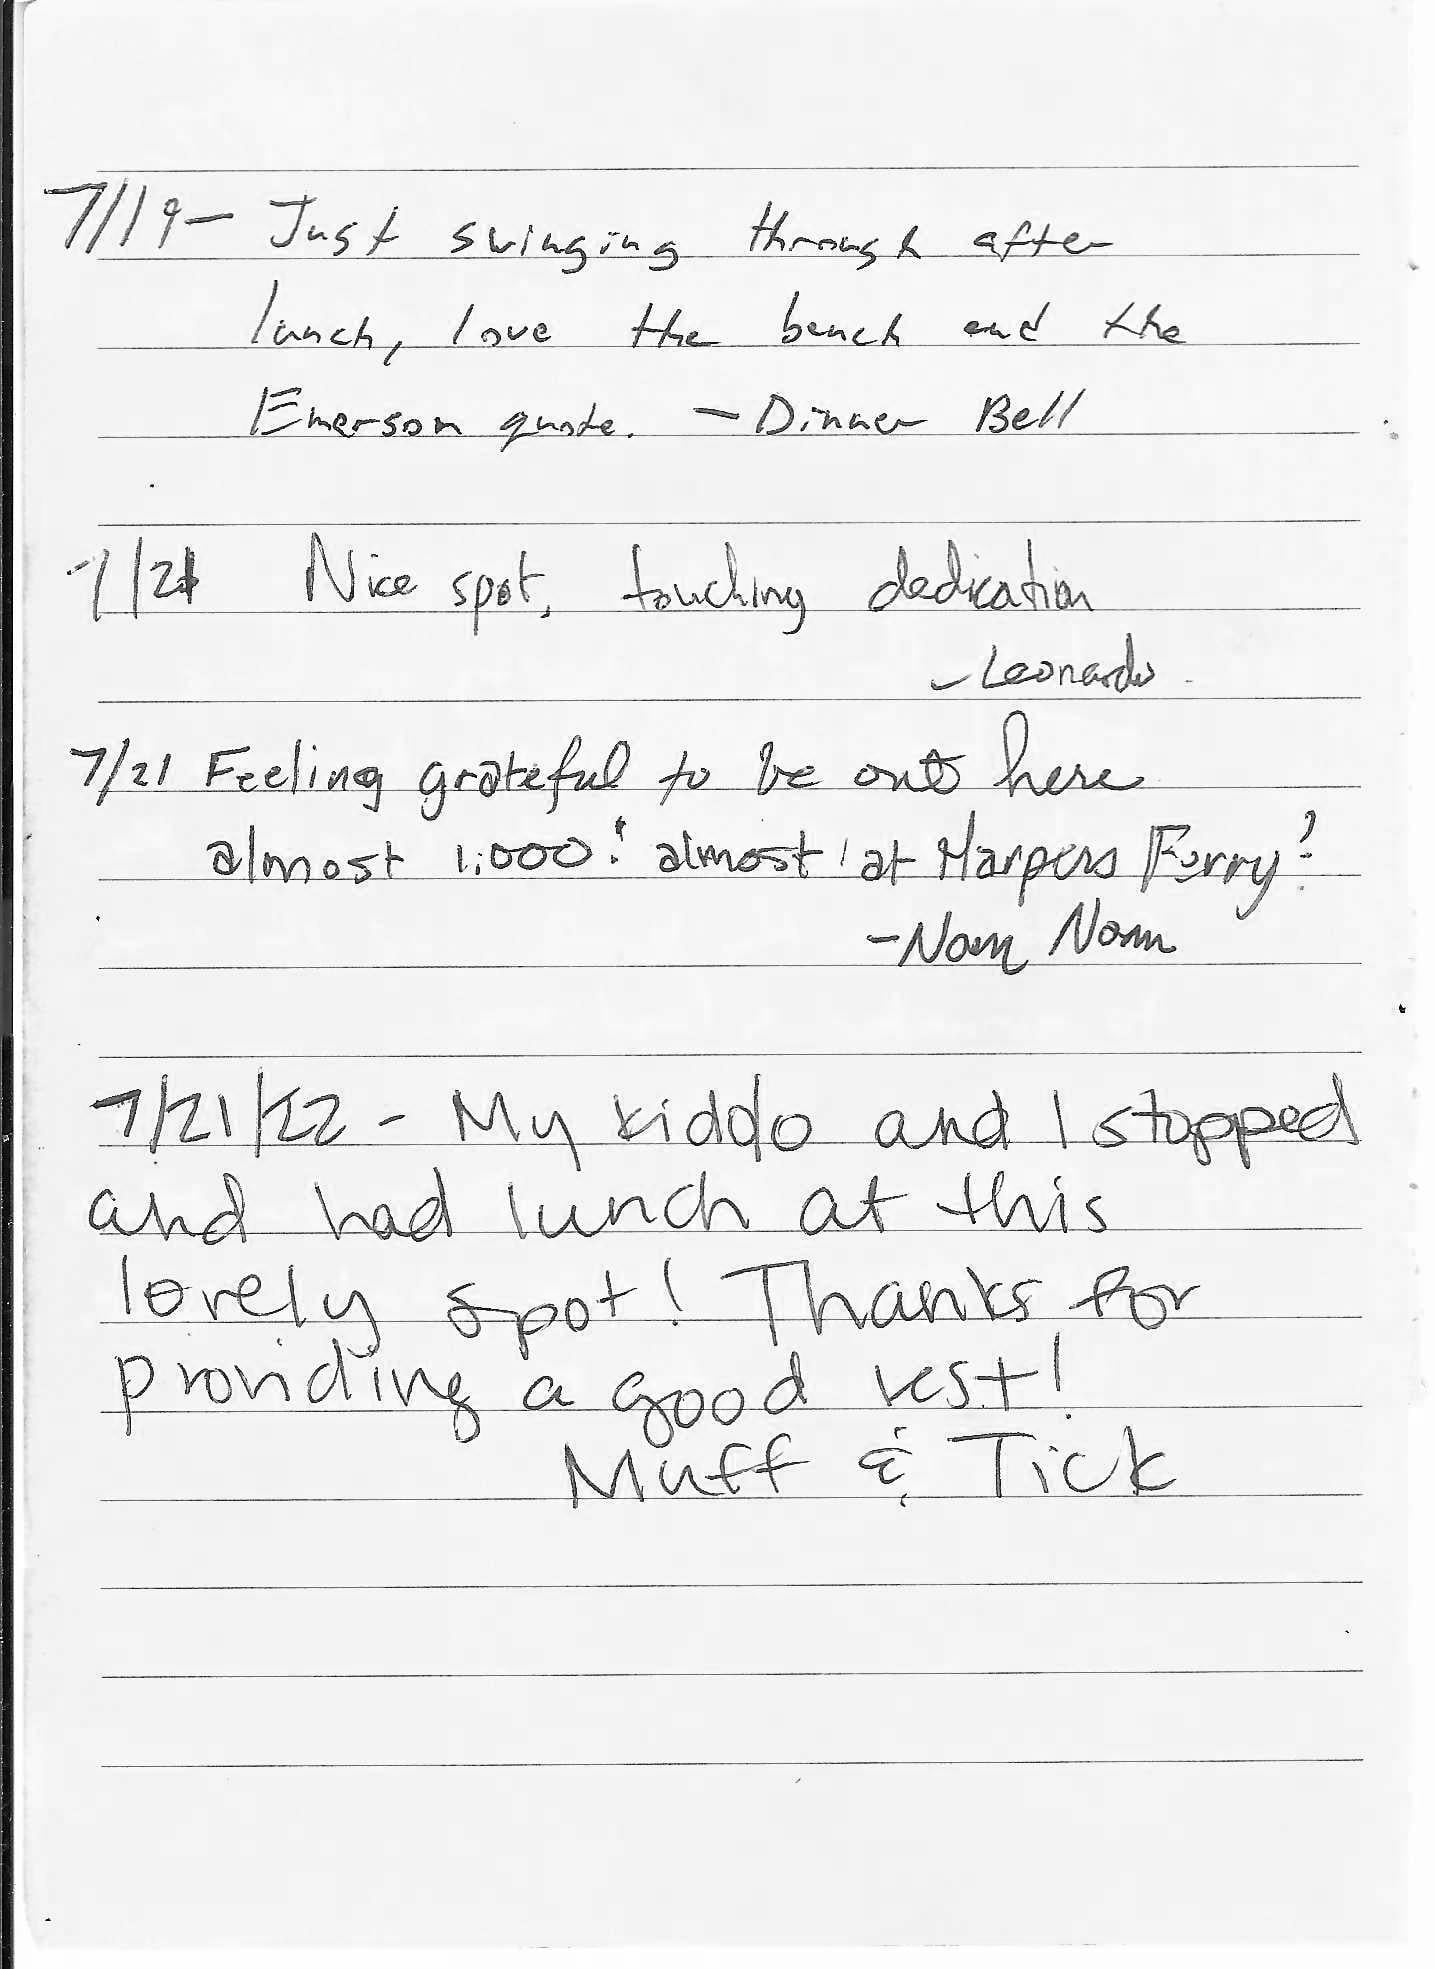 7/19 – Just swinging through after
lunch, love the bench and the
Emerson quote. – Dinner Bell
7/21 Nice spot, touching dedication
– Leonardo
7/21 Feeling grateful to be out here
almost 1,000! almost at Harpers Ferry!
- Nom Nom
7/21/22 - My kiddo and I stopped
and had lunch at this
lovely spot! Thanks for
providing a good rest!
Muff & Tick